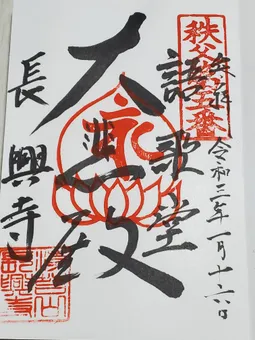 秩父第五番
奉拝
令和三年一月十六日
語歌堂
大悲殿
長興寺